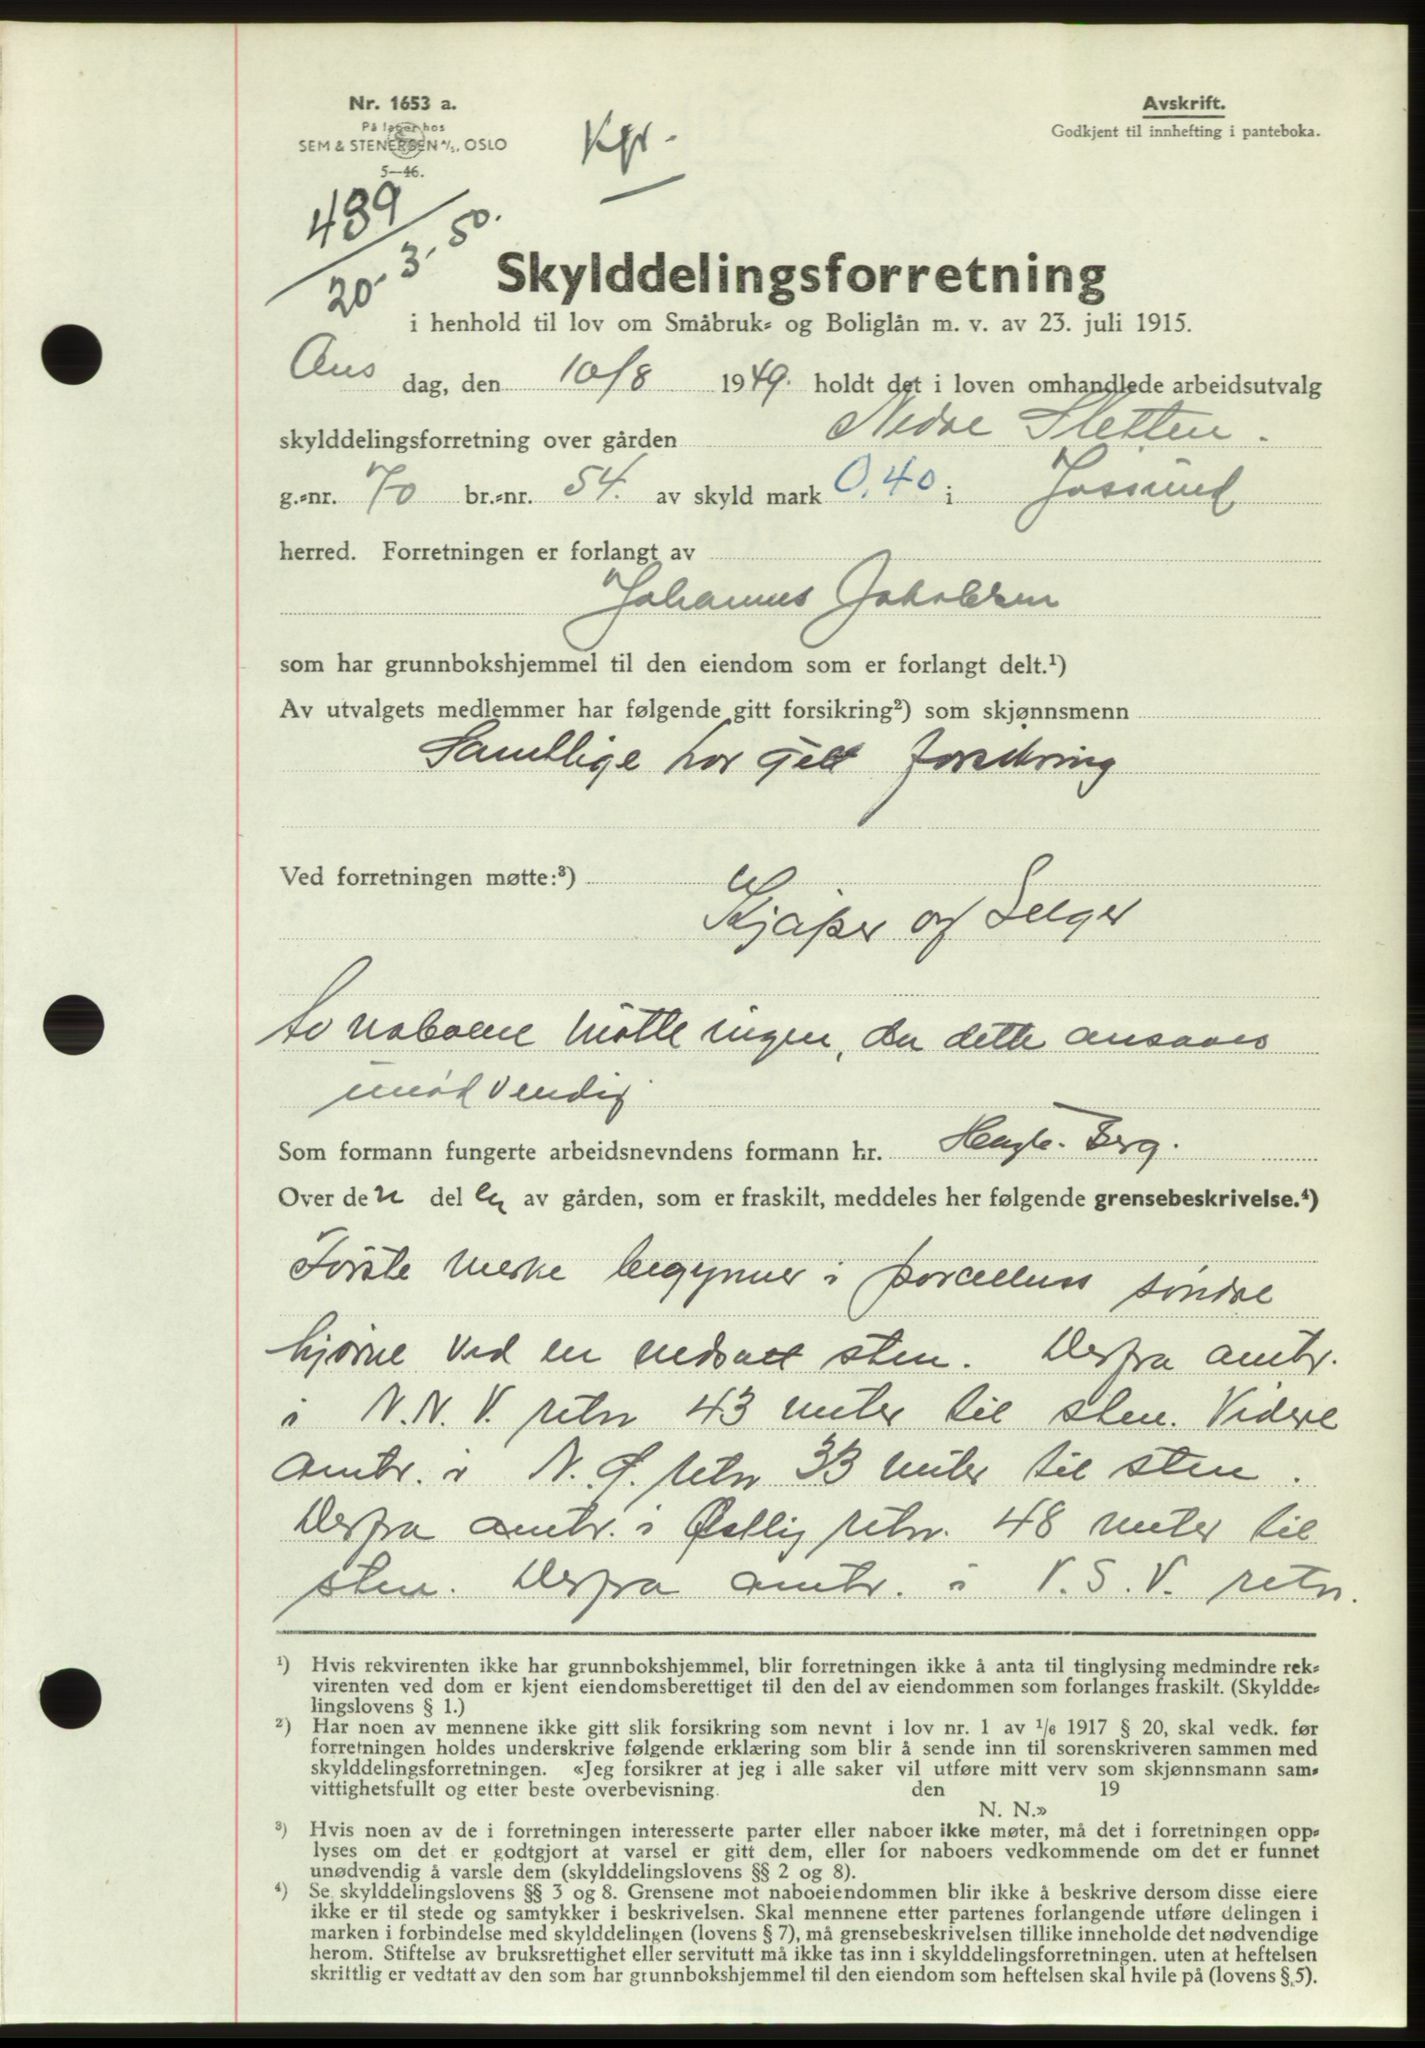 Nr. 1653 a.
På lager hos
SEM & STENERSEN A/S, OSLO
5—46.
Kfr.
Avskrift.
Godkjent til innhefting i panteboka.
489
20-3-50.
Skylddelingsforretning
i henhold til lov om Småbruk- og Boliglån m. v. av 23. juli 1915.
Ons dag, den 10/8 1949. holdt det i loven omhandlede arbeidsutvalg
skylddelingsforretning over gården Nedre Sletten.
g.-nr. 70 br.-nr. 54. av skyld mark 0,40 i Jøssund
herred. Forretningen er forlangt av
Johannes Jakobsen
som har grunnbokshjemmel til den eiendom som er forlangt delt.¹)
Av utvalgets medlemmer har følgende gitt forsikring²) som skjønnsmenn
Samtlige har gitt forsikring
Ved forretningen møtte:³)
Kjøper og Selger
Av naboene møtte ingen, da dette ansaaes
unødvendig
Som formann fungerte arbeidsnevndens formann hr. Berg.
Over de n del av gården, som er fraskilt, meddeles her følgende grensebeskrivelse.⁴)
Første merke begynner i parcellens søndre
hjørne ved en nedsatt sten. Derfra omtr.
i N.N.V. retn 43 meter til sten. Videre
omtr. i N.Ø. retn 33 meter til sten.
Derfra omtr. i Østlig retn. 48 meter til
sten. Derfra omtr. i V.S.V. retn.
¹) Hvis rekvirenten ikke har grunnbokshjemmel, blir forretningen ikke å anta til tinglysing medmindre rek-
virenten ved dom er kjent eiendomsberettiget til den del av eiendommen som forlanges fraskilt. (Skyldde-
lingslovens § 1.)
²) Har noen av mennene ikke gitt slik forsikring som nevnt i lov nr. 1 av 1/6 1917 § 20, skal vedk. før
forretningen holdes underskrive følgende erklæring som blir å sende inn til sorenskriveren sammen med
skylddelingsforretningen. «Jeg forsikrer at jeg i alle saker vil utføre mitt verv som skjønnsmann sam-
vittighetsfullt og etter beste overbevisning. den 19
N. N.»
³) Hvis noen av de i forretningen interesserte parter eller naboer ikke møter, må det i forretningen opp-
lyses om det er godtgjort at varsel er gitt dem, eller for naboers vedkommende om det er funnet
unødvendig å varsle dem (skylddelingslovens §§ 2 og 8).
⁴) Se skylddelingslovens §§ 3 og 8. Grensene mot naboeiendommen blir ikke å beskrive dersom disse eiere
ikke er til stede og samtykker i beskrivelsen. Skal mennene etter partenes forlangende utføre delingen i
marken i forbindelse med skylddelingen (lovens § 7), må grensebeskrivelsen tillike inneholde det nødvendige
herom. Stiftelse av bruksrettighet eller servitutt må ikke tas inn i skylddelingsforretningen. uten at heftelsen
skriftlig er vedtatt av den som har grunnbokshjemmel til den eiendom som heftelsen skal hvile på (lovens § 5).